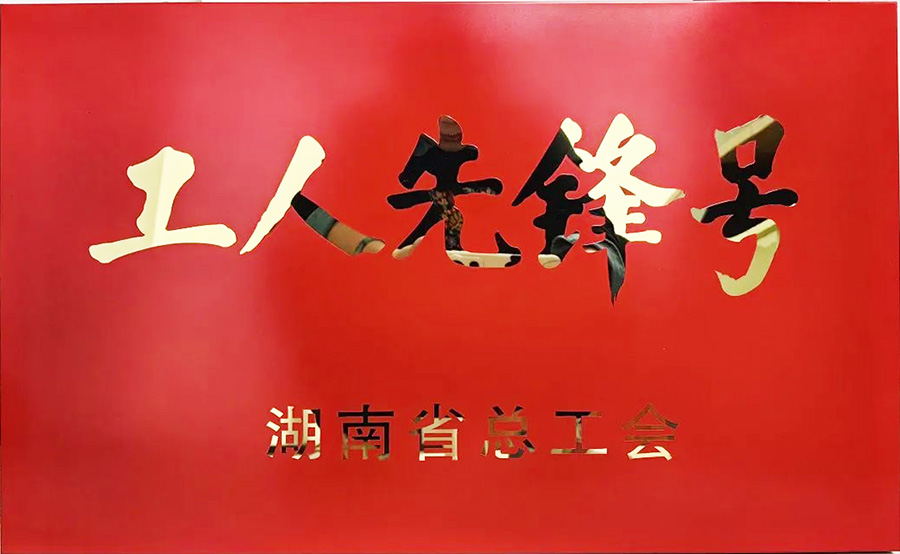 工人先锋号
湖南省总工会